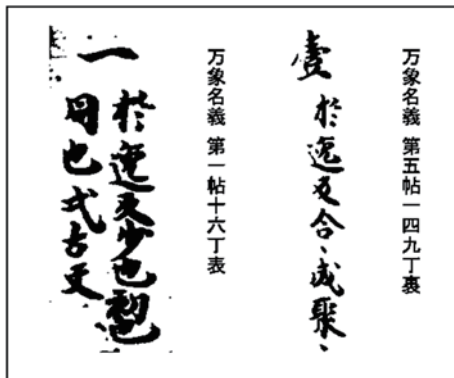 万象名義 第五帖一四九丁裏
壹 於逸反合、成聚、
万象名義 第一帖十六丁表
一 於逸反少也初也
同也弌古文